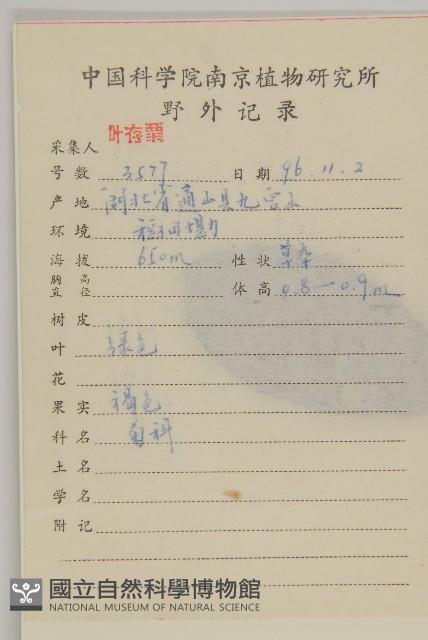 中国科学院南京植物研究所
野外记录
采集人 叶存粟
号数 3577 日期 96.11.2
产地 湖北省通山县九宫山
环境
海拔 650m 性状 草本
胸高直径 体高 0.8—0.9m
树皮
叶 绿色
花
果实 褐色
科名 菊科
土名
学名
附记
國立自然科學博物館
NATIONAL MUSEUM OF NATURAL SCIENCE